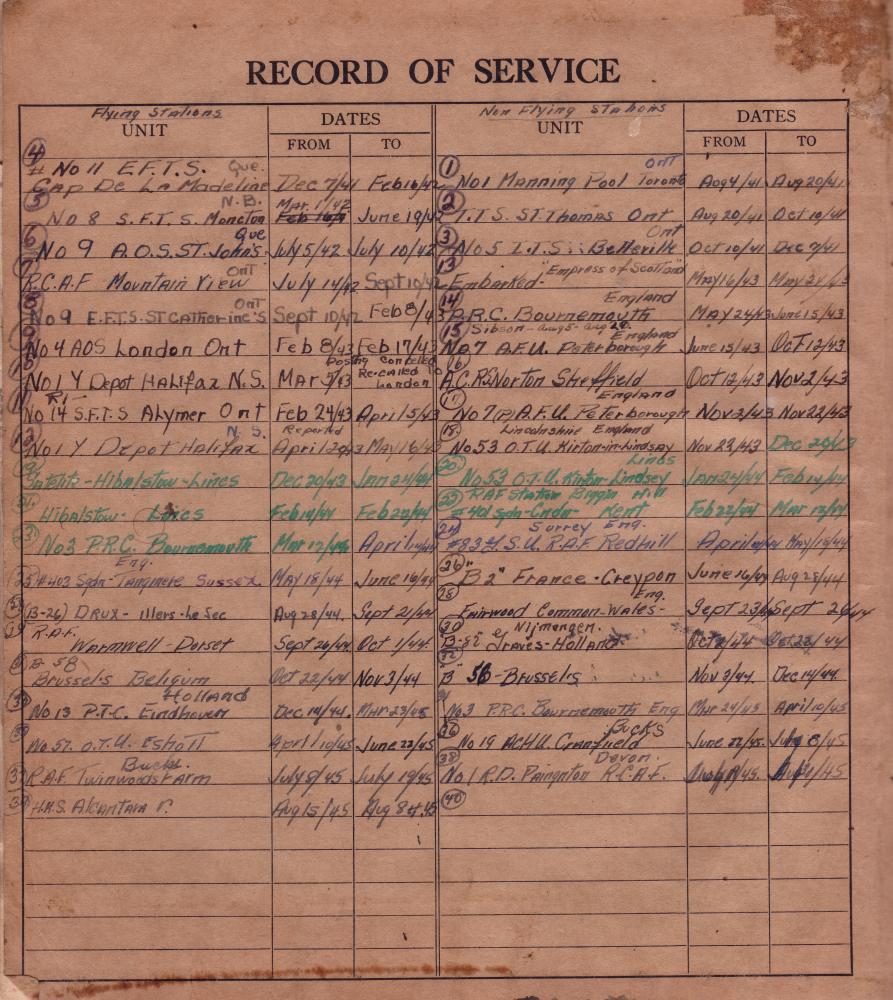 RECORD OF SERVICE
Flying Stations
UNIT
DATES
FROM TO
4
# No 11 E.F.T.S. Que.
Cap De La Madeline Dec 7/41 Feb 16/42
5
N.B. Mar. 1/42
No 8 S.F.T.S. Moncton Feb 16/42 June 19/42
6
Que
No 9 A.O.S. ST. John's July 5/42 July 10/42
7
Ont
R.C.A.F Mountain View July 14/42 Sept 10/42
8
Ont
No 9 E.F.T.S. ST Catherine's Sept 10/42 Feb 8/43
9
No 4 AOS London Ont Feb 8/43 Feb 17/43
10
Posting Cancelled
Re-called to
London
No 1 Y Depot Halifax N.S. Mar 3/43
11
No 14 S.F.T.S Alymer Ont Feb 24/43 April 5/43
12
N.S. Reported
No 1 Y Depot Halifax April 29/43 May 16/43
19
-Hibalstow-Lincs Dec 20/43 Jan 24/44
21
Hibalstow- Lincs Feb 14/44 Feb 22/44
23
No 3 P.R.C. Bournemouth Mar 12/44 April
Eng.
25 #403 Sqdn-Tangmere Sussex May 18/44 June 16/44
27
(B-26) DRUX - Illers-he Sec Aug 28/44. Sept 21/44
29
R.A.F.
Warmwell-Dorset Sept 26/44. Oct 1/44.
B 58
Brussels Belgium Oct 22/44 Nov 3/44
33
Holland
No 13 P.T.C. Eindhoven Dec 14/44. Mar 23/45
35
No 57. O.T.U. Eshott April 10/45 June 22/45
37
Bucks.
R.A.F. Twinwoods Farm July 8/45 July 19/45
39
H.M.S. Alcantara Aug 1/45 Aug 8/45
Non Flying Stations
UNIT
DATES
FROM TO
1
Ont
No 1 Manning Pool Toronto Aog 4/41 Aug 20/41
2
I.T.S. ST. Thomas Ont Aug 20/41 Oct 10/41
3
Ont
No 5 I.T.S. Belleville Oct 10/41 Dec 7/41
13
"Empress of Scotland"
Embarked- May 16/43 May 24/43
14
England
P.R.C. Bournemouth May 24/43 June 15/43
15
Sibson-aug 5-aug 20.
England
No 7 A.F.U. Peterborough June 15/43 Oct 12/43
16
A.C.R.S Norton Sheffield Oct 12/43 Nov 2/43
17
England
No 7 (P) A.F.U. Peterborough Nov 2/43 Nov 22/43
18
Lincolnshire England
No 53 O.T.U. Kirton-in-Lindsay Nov 22/43 Dec 20/43
20
Lincs
No 53 O.T.U. Kirton-Lindsey Jan 24/44 Feb 14/44
22
RAF Station Biggin Hill
#401 Sqdn-Under Kent Feb 22/44 Mar 12/44
24
Surrey Eng.
#83 G.S.U. R.A.F. Redhill April May 18/44
26
"B 2" France - Creypon June 16/44 Aug 28/44
28
Eng.
Fairwood Common-Wales- Sept 23/44 Sept 26/44
30
Nijmengen.
Graves-Holland Oct 2/44 Oct 22/44
32
"B" 56-Brussels Nov 3/44. Dec 14/44.
34
No 3 P.R.C. Bournemouth Eng Mar 24/45 April 10/45
36
Bucks
No 19 ACHU. Cranfield June 22/45. July 8/45
38
Devon.
No 1 R.D. Paington R.C.A.F. July 19/45. Aug 1/45
40